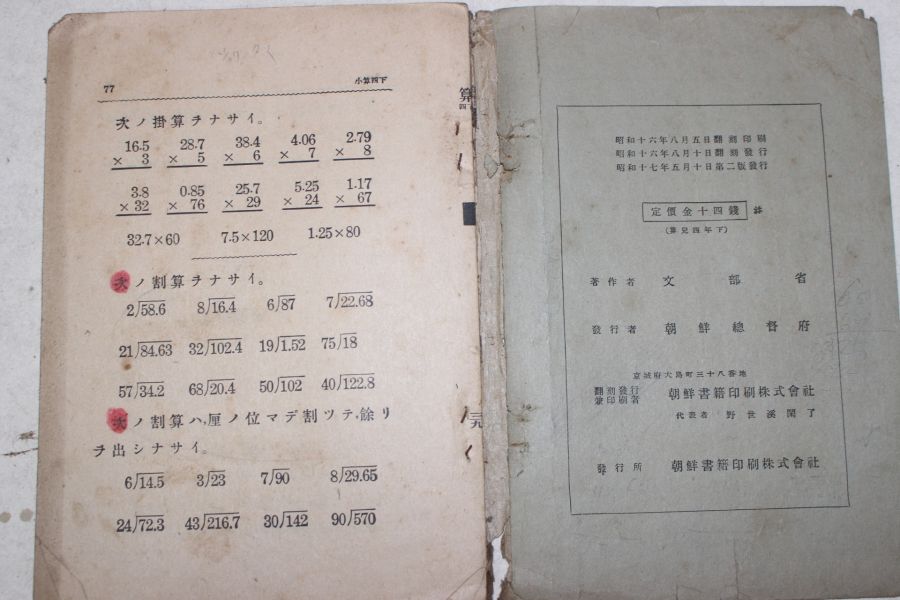 77
小算四下
次ノ掛算ヲナサイ。
16.5 28.7 38.4 4.06 2.79
× 3 × 5 × 6 × 7 × 8
3.8 0.85 25.7 5.25 1.17
× 32 × 76 × 29 × 24 × 67
32.7×60 7.5×120 1.25×80
次ノ割算ヲナサイ。
2)58.6 8)16.4 6)87 7)22.68
21)84.63 32)102.4 19)1.52 75)18
57)34.2 68)20.4 50)102 40)122.8
次ノ割算ハ,厘ノ位マデ割ツテ,餘リ
ヲ出シナサイ。
6)14.5 3)23 7)90 8)29.65
24)72.3 43)216.7 30)142 90)570
算
四
完
昭和十六年八月五日翻刻印刷
昭和十六年八月十日翻刻發行
昭和十七年五月十日第二版發行
定價金十四錢
(算兒四年下)
著作者 文部省
發行者 朝鮮總督府
京城府大島町三十八番地
翻刻發行
兼印刷者 朝鮮書籍印刷株式會社
代表者 野世溪閑了
發行所 朝鮮書籍印刷株式會社